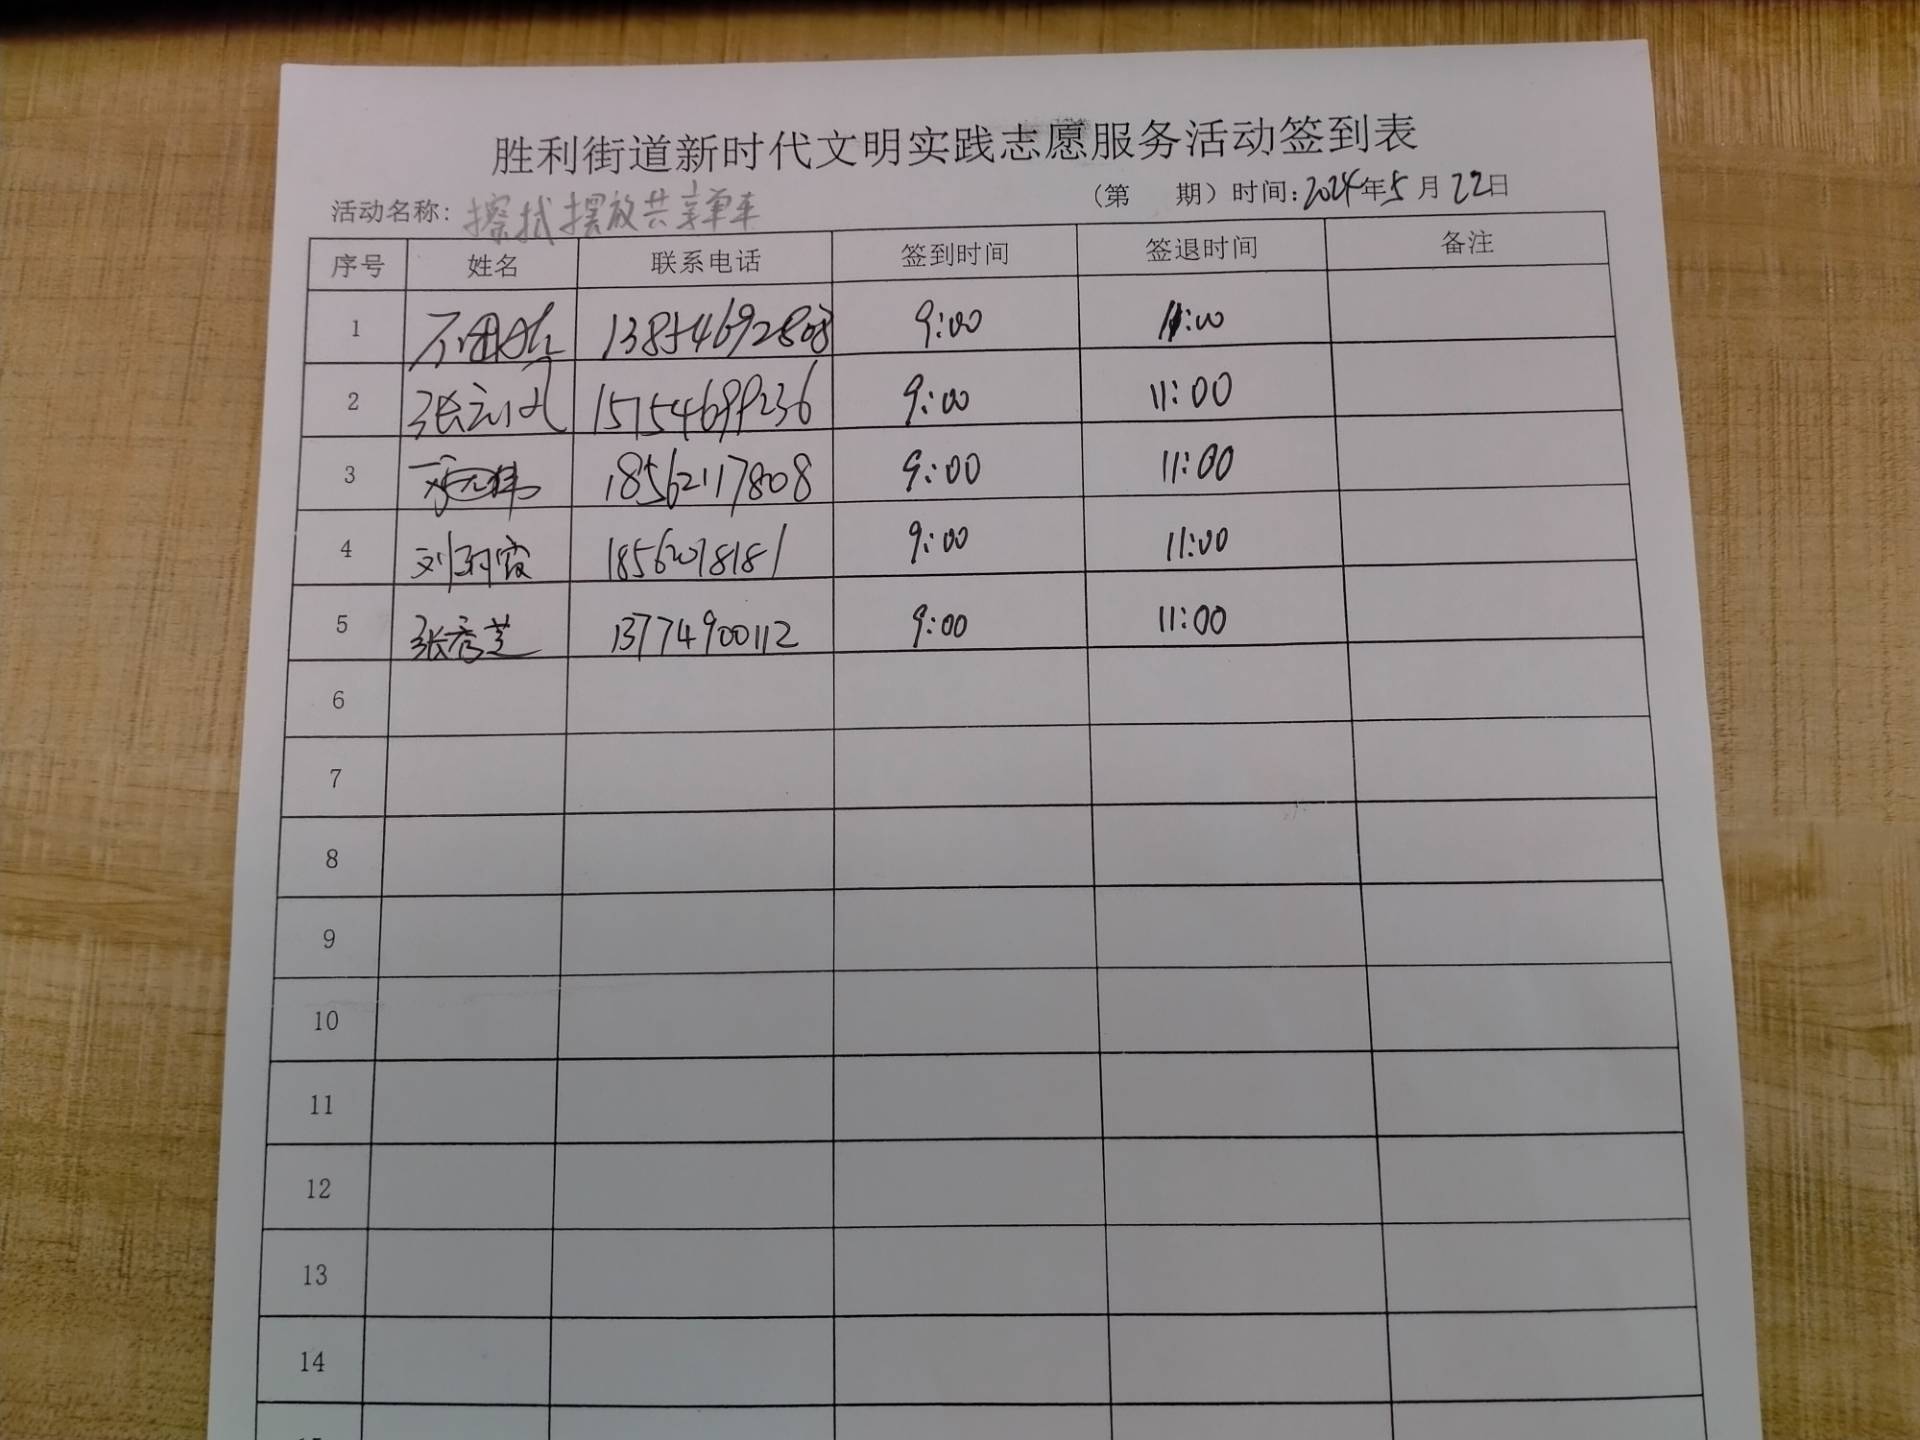 胜利街道新时代文明实践志愿服务活动签到表
活动名称：擦拭摆放共享单车 （第 期）时间：2024年5月22日
序号 姓名 联系电话 签到时间 签退时间 备注
1 13854692808 9:00 11:00
2 张 15754699236 9:00 11:00
3 18562117808 9:00 11:00
4 刘 霞 18562078181 9:00 11:00
5 张秀芝 13774900112 9:00 11:00
6
7
8
9
10
11
12
13
14